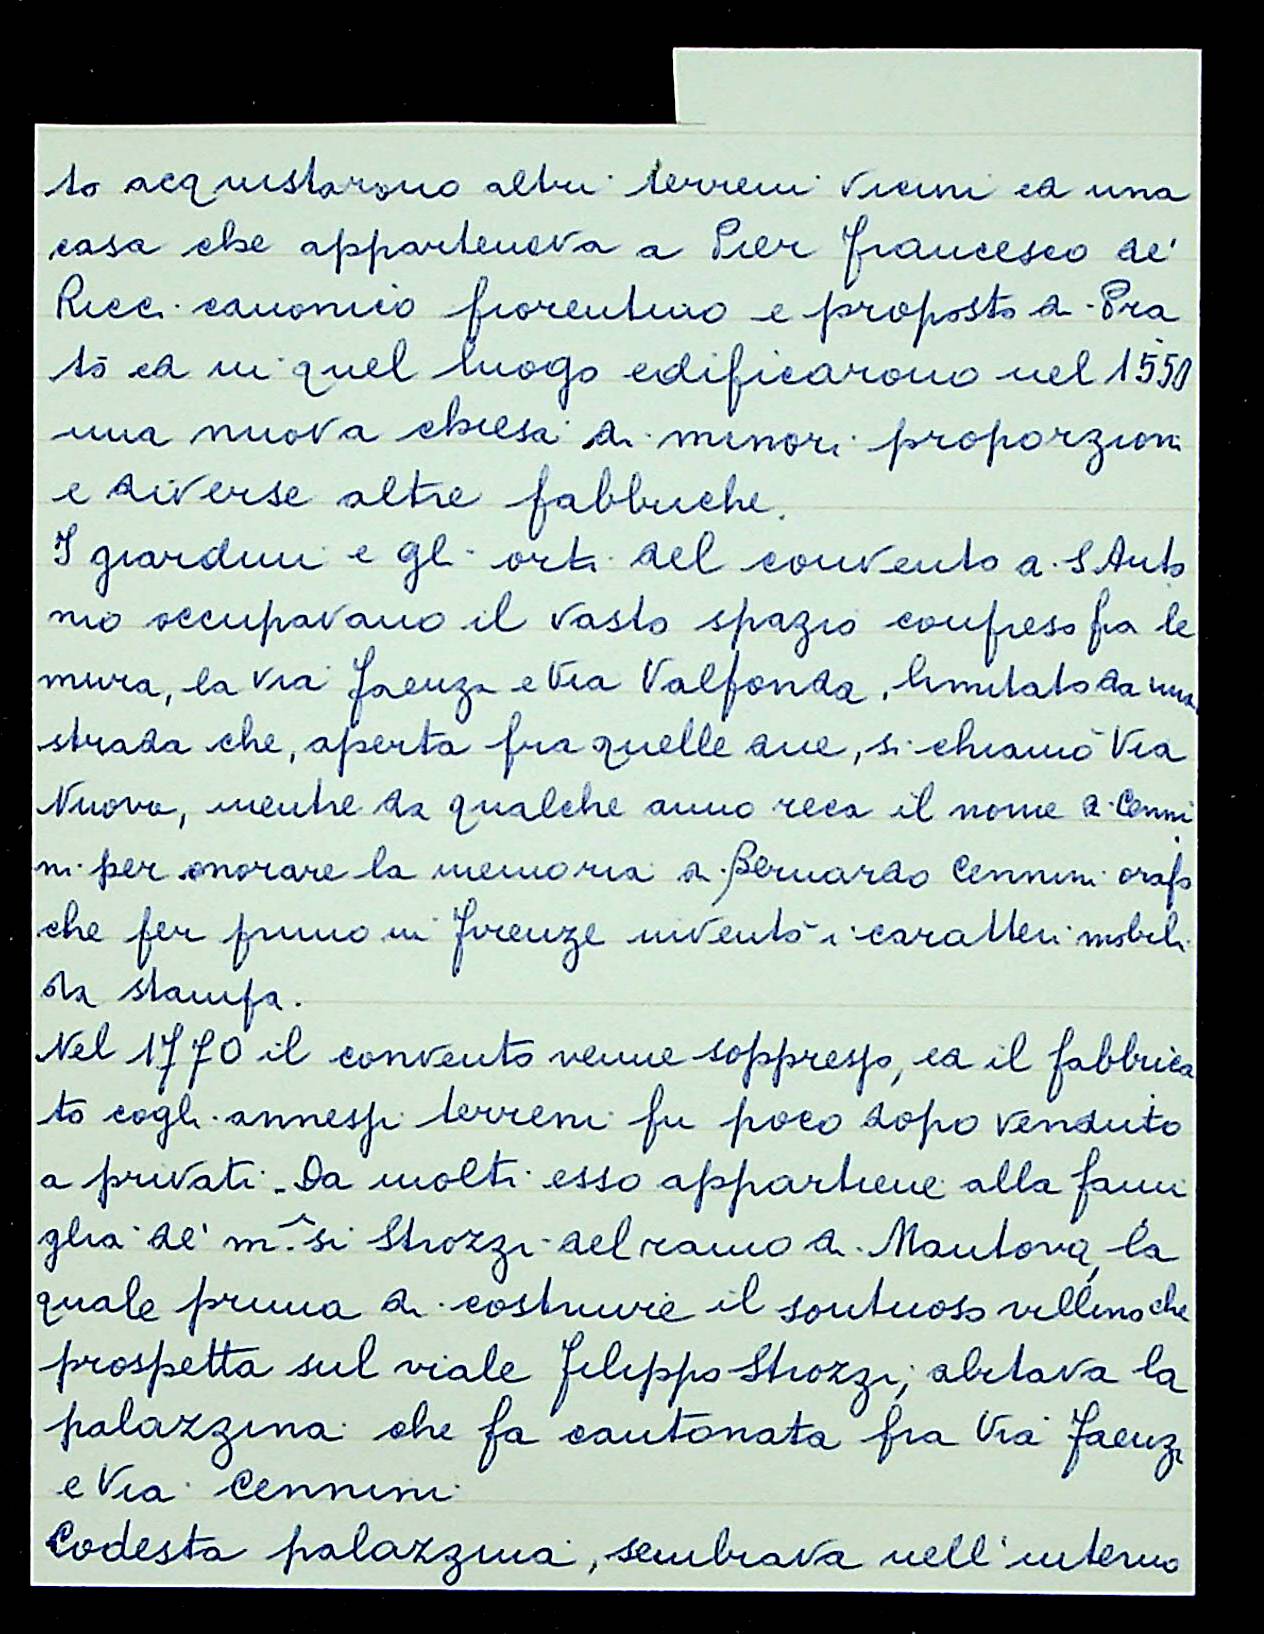 to acquistarono altri terreni vicini ed una
casa che apparteneva a Pier Francesco de'
Ricci canonico fiorentino e proposto di Pra
to ed in quel luogo edificarono nel 1550
una nuova chiesa di minori proporzioni
e diverse altre fabbriche.
I giardini e gli orti del convento a S Anto
nio occupavano il vasto spazio compreso fra le
mura, la via Faenza e Via Valfonda, limitato da una
strada che, aperta fra quelle due, si chiamò Via
Nuova, mentre da qualche anno reca il nome di Cenni
ni per onorare la memoria di Bernardo Cennini orafo
che per primo in Firenze inventò i caratteri mobili
da stampa.
Nel 1770 il convento venne soppresso, ed il fabbrica
to cogli annessi terreni fu poco dopo venduto
a privati. Da molti esso appartiene alla fami
glia de' m.si Strozzi del ramo di Mantova, la
quale prima di costruire il sontuoso villino che
prospetta sul viale Filippo Strozzi, abitava la
palazzina che fa cantonata fra Via Faenza
e Via Cennini
Codesta palazzina, sembrava nell'interno